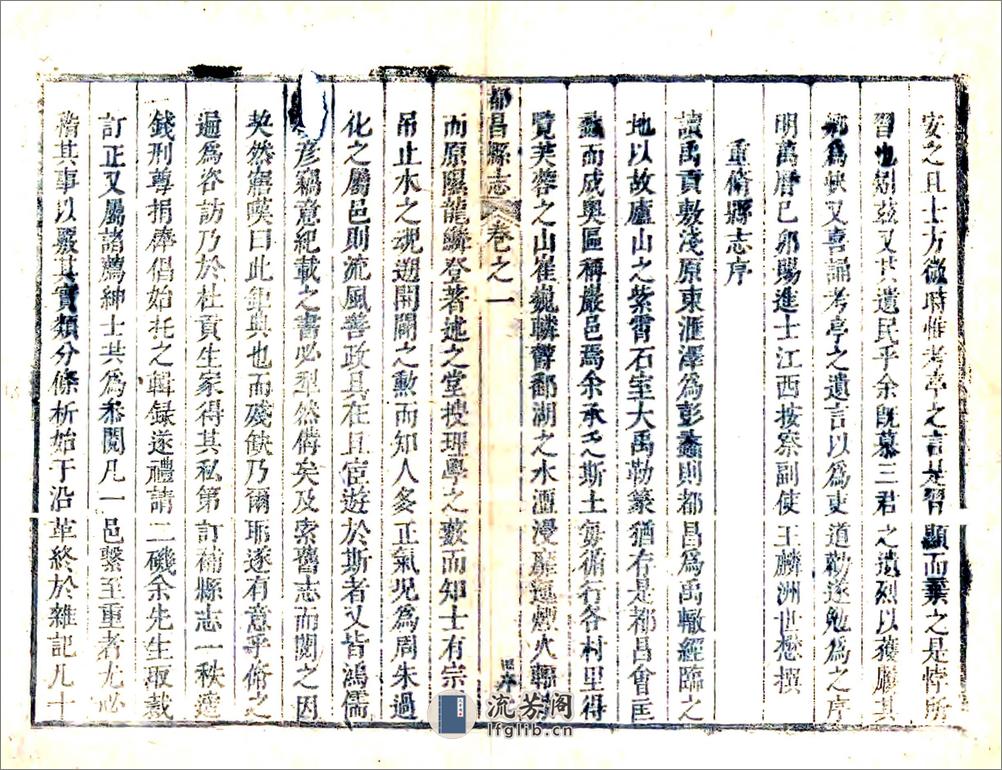 安之且士方微時惟考亭之言是習顯而棄之是悖所
習也矧茲又其遺民乎余旣慕三君之遺烈以獲廁其
鄉為快又喜誦考亭之遺言以為吏道勒遂勉為之序
明萬曆己卯賜進士江西按察副使王麟洲世懋撰
重脩縣志序
讀禹貢敷淺原東滙澤為彭蠡則都昌為禹轍經臨之
地以故廬山之紫霄石室大禹勒篆猶存是都昌會匡
蠡而成奧區稱巖邑焉余承乏斯土每循行各村里得
覽芙蓉之山崔巍轔鬱鄱湖之水滙浸龐遠煙火
都昌縣志
卷之一
舊序
而原隰龍鱗登著述之堂搜理學之藪而知士有宗
吊止水之魂遡開閫之勳而知人多正氣况為周朱過
化之屬邑則流風善政具在且宦遊於斯者又皆鴻儒
彥竊意紀載之書必犁然備矣及索舊志而閱之因
喫然寤嘆曰此鉅典也而殘缺乃爾耶遂有意乎脩之
遍為咨訪乃於杜貢生家得其私第訂補縣志一秩遂
錢刑尊捐俸倡始托之輯録遂禮請二磯余先生取裁
訂正又屬諸薦紳士共為叅閱凡一邑繫至重者尤必
楷其事以覈其實類分條析始于沿革終於雜記凡十
流芳阁
lfglib.cn